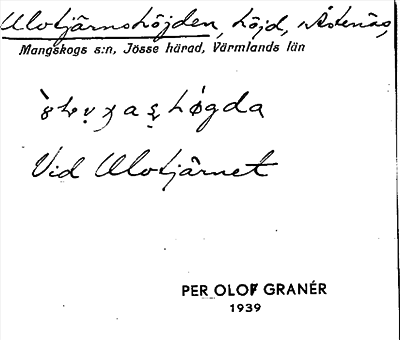 Ulvtjärnshöjden, höjd, Åstenäs,
Mangskogs s:n, Jösse härad, Värmlands län
høgda
Vid Ulvtjärnet
PER OLOF GRANÉR
1939